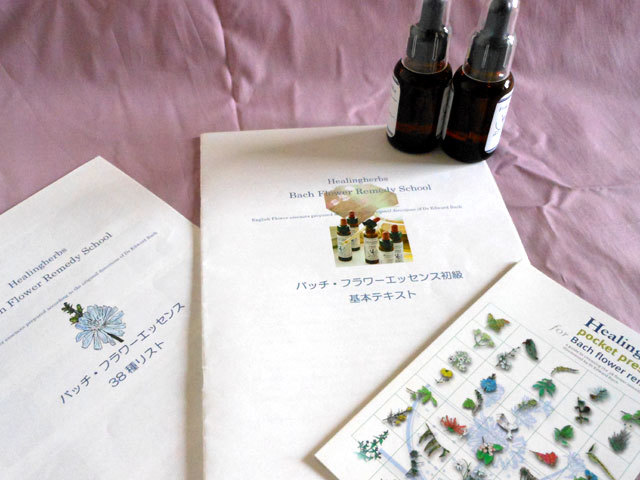 Healingherbs
Bach Flower Remedy School
English Flower essences prepared
directions of Dr Edward Bach
バッチ・フラワーエッセンス初級
基本テキスト
Healingherbs
Flower Remedy School
essences prepared according to the original directions of Dr Edward Bach
バッチ・フラワーエッセンス
38種リスト
pocket
for Bach flower